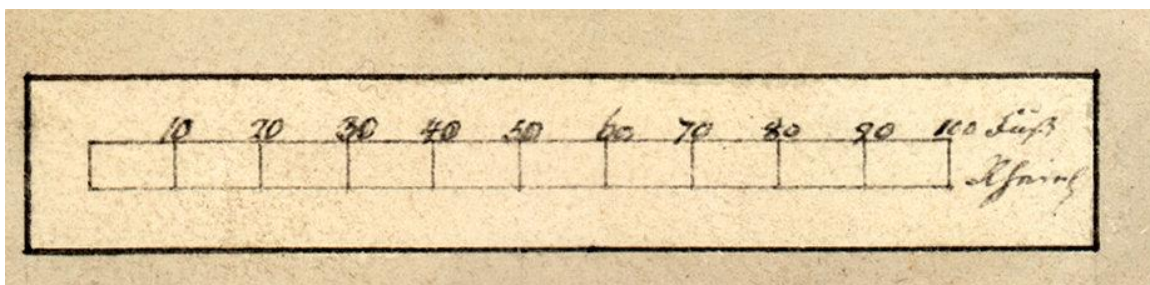 10 20 30 40 50 60 70 80 90 100 Fuß
Rheinl